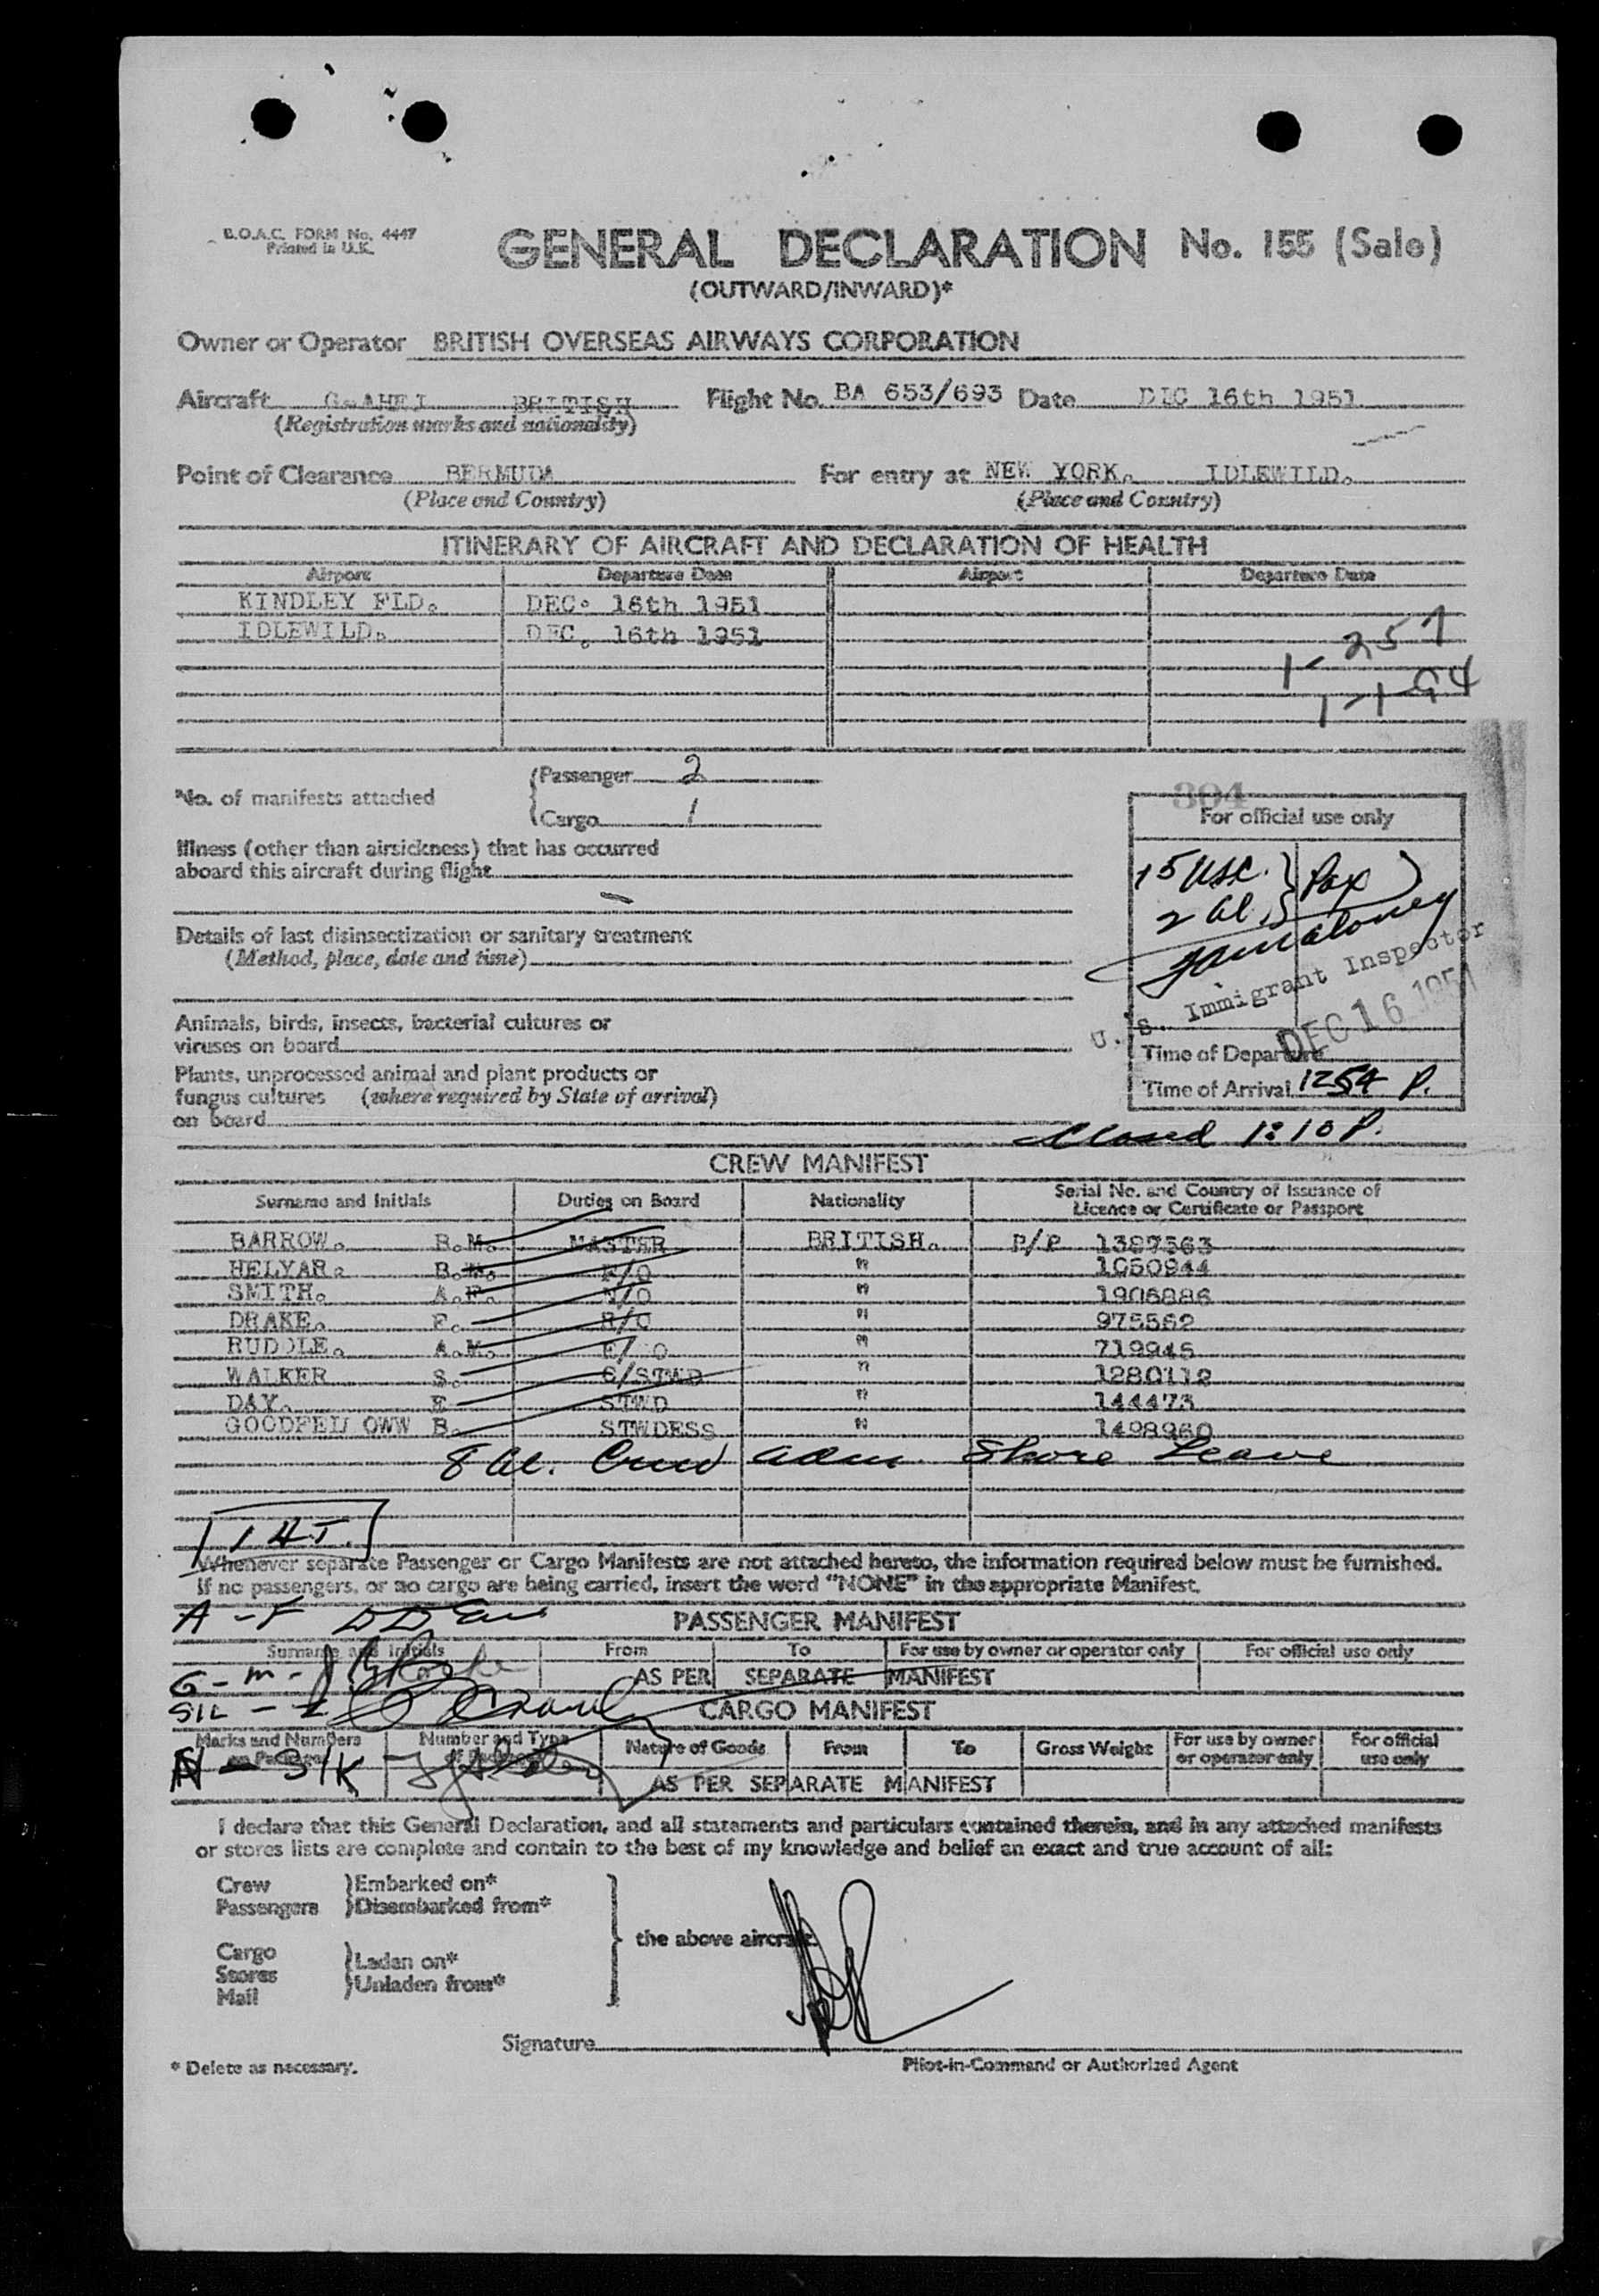 B.O.A.C. FORM No. 4447
Printed in U.K.
GENERAL DECLARATION No. 155 (Sale)
(OUTWARD/INWARD)*
Owner or Operator BRITISH OVERSEAS AIRWAYS CORPORATION
Aircraft G-AHEJ BRITISH Flight No. BA 653/693 Date DEC 16th 1951
(Registration marks and nationality)
Point of Clearance BERMUDA For entry at NEW YORK. IDLEWILD.
(Place and Country) (Place and Country)
ITINERARY OF AIRCRAFT AND DECLARATION OF HEALTH
Airport Departure Date Airport Departure Date
KINDLEY FLD. DEC. 16th 1951
IDLEWILD. DEC. 16th 1951
1-257
1-1-94
*No. of manifests attached
Passenger 2
Cargo 1
304
For official use only
Illness (other than airsickness) that has occurred
aboard this aircraft during flight
15 USC. } Pax
2 al.
Details of last disinsectization or sanitary treatment
(Method, place, date and time)
U.S. Immigrant Inspector
DEC 16 1951
Animals, birds, insects, bacterial cultures or
viruses on board
Time of Departure
Plants, unprocessed animal and plant products or
fungus cultures (where required by State of arrival)
on board
Time of Arrival 1254 P.
Closed 1:10 P.
CREW MANIFEST
Surname and Initials Duties on Board Nationality Serial No. and Country of Issuance of
Licence or Certificate or Passport
BARROW. B.M. MASTER BRITISH. P/P 1387563
HELYAR. B. F/O " 1050944
SMITH. A.F. N/O " 1906886
DRAKE. F. R/O " 975562
RUDDLE. A.M. E/O " 719945
WALKER S. C/STWD " 1280112
DAY. E STWD " 144473
GOODFELLOWW B. STWDESS " 1498960
8 al. Crew adm. Shore Leave
1 4 T.
Whenever separate Passenger or Cargo Manifests are not attached hereto, the information required below must be furnished.
If no passengers, or no cargo are being carried, insert the word "NONE" in the appropriate Manifest.
A - F
PASSENGER MANIFEST
Surname and Initials From To For use by owner or operator only For official use only
G - M -
AS PER SEPARATE MANIFEST
CARGO MANIFEST
Marks and Numbers on Packages Number and Type of Packages Nature of Goods From To Gross Weight For use by owner or operator only For official use only
N - SIK
AS PER SEPARATE MANIFEST
I declare that this General Declaration, and all statements and particulars contained therein, and in any attached manifests
or stores lists are complete and contain to the best of my knowledge and belief an exact and true account of all:
Crew
Passengers
Embarked on*
Disembarked from*
the above aircraft.
Cargo
Stores
Mail
Laden on*
Unladen from*
Signature
Pilot-in-Command or Authorized Agent
* Delete as necessary.